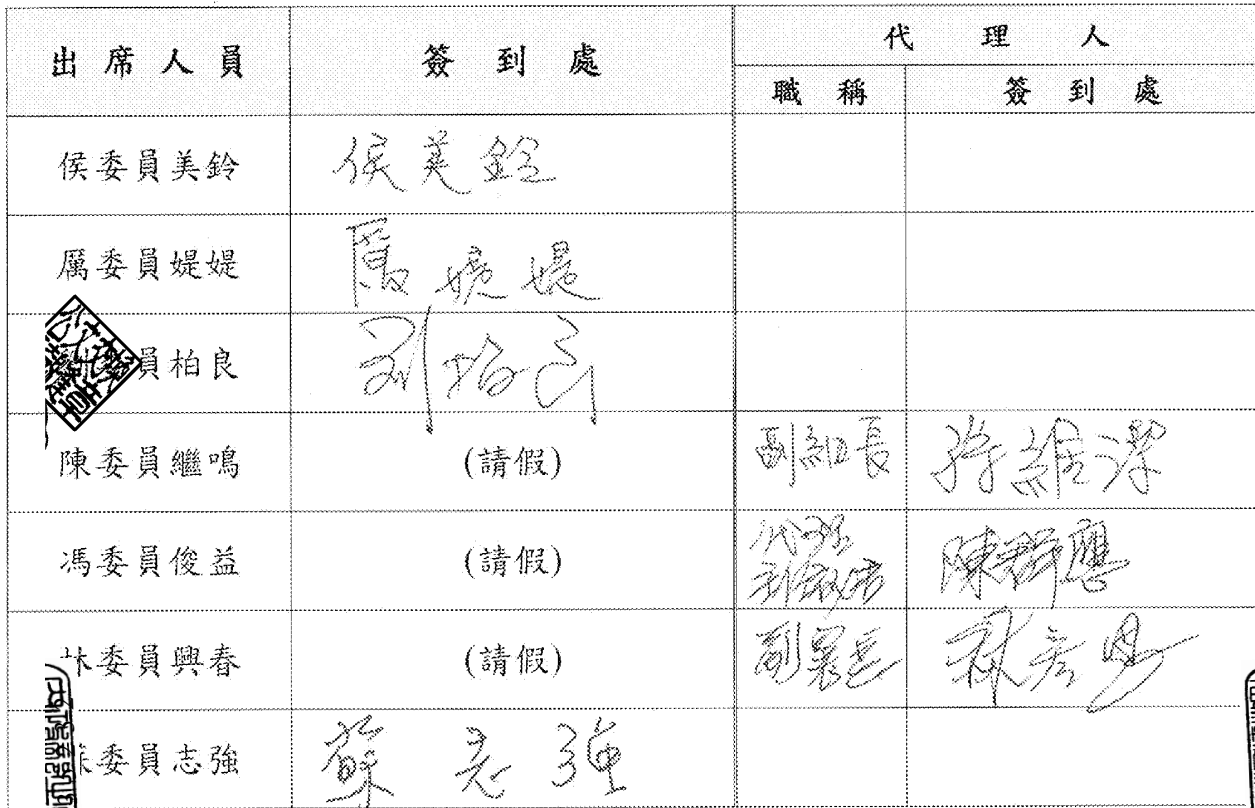 出席人員 簽到處 代理人
職稱 簽到處
侯委員美鈴 侯美鈴
厲委員媞媞 厲媞媞
員柏良 刘柏良
陳委員繼鳴 (請假) 副組長
馮委員俊益 (請假) 陳群應
林委員興春 (請假) 副署長
委員志強 蘇志強